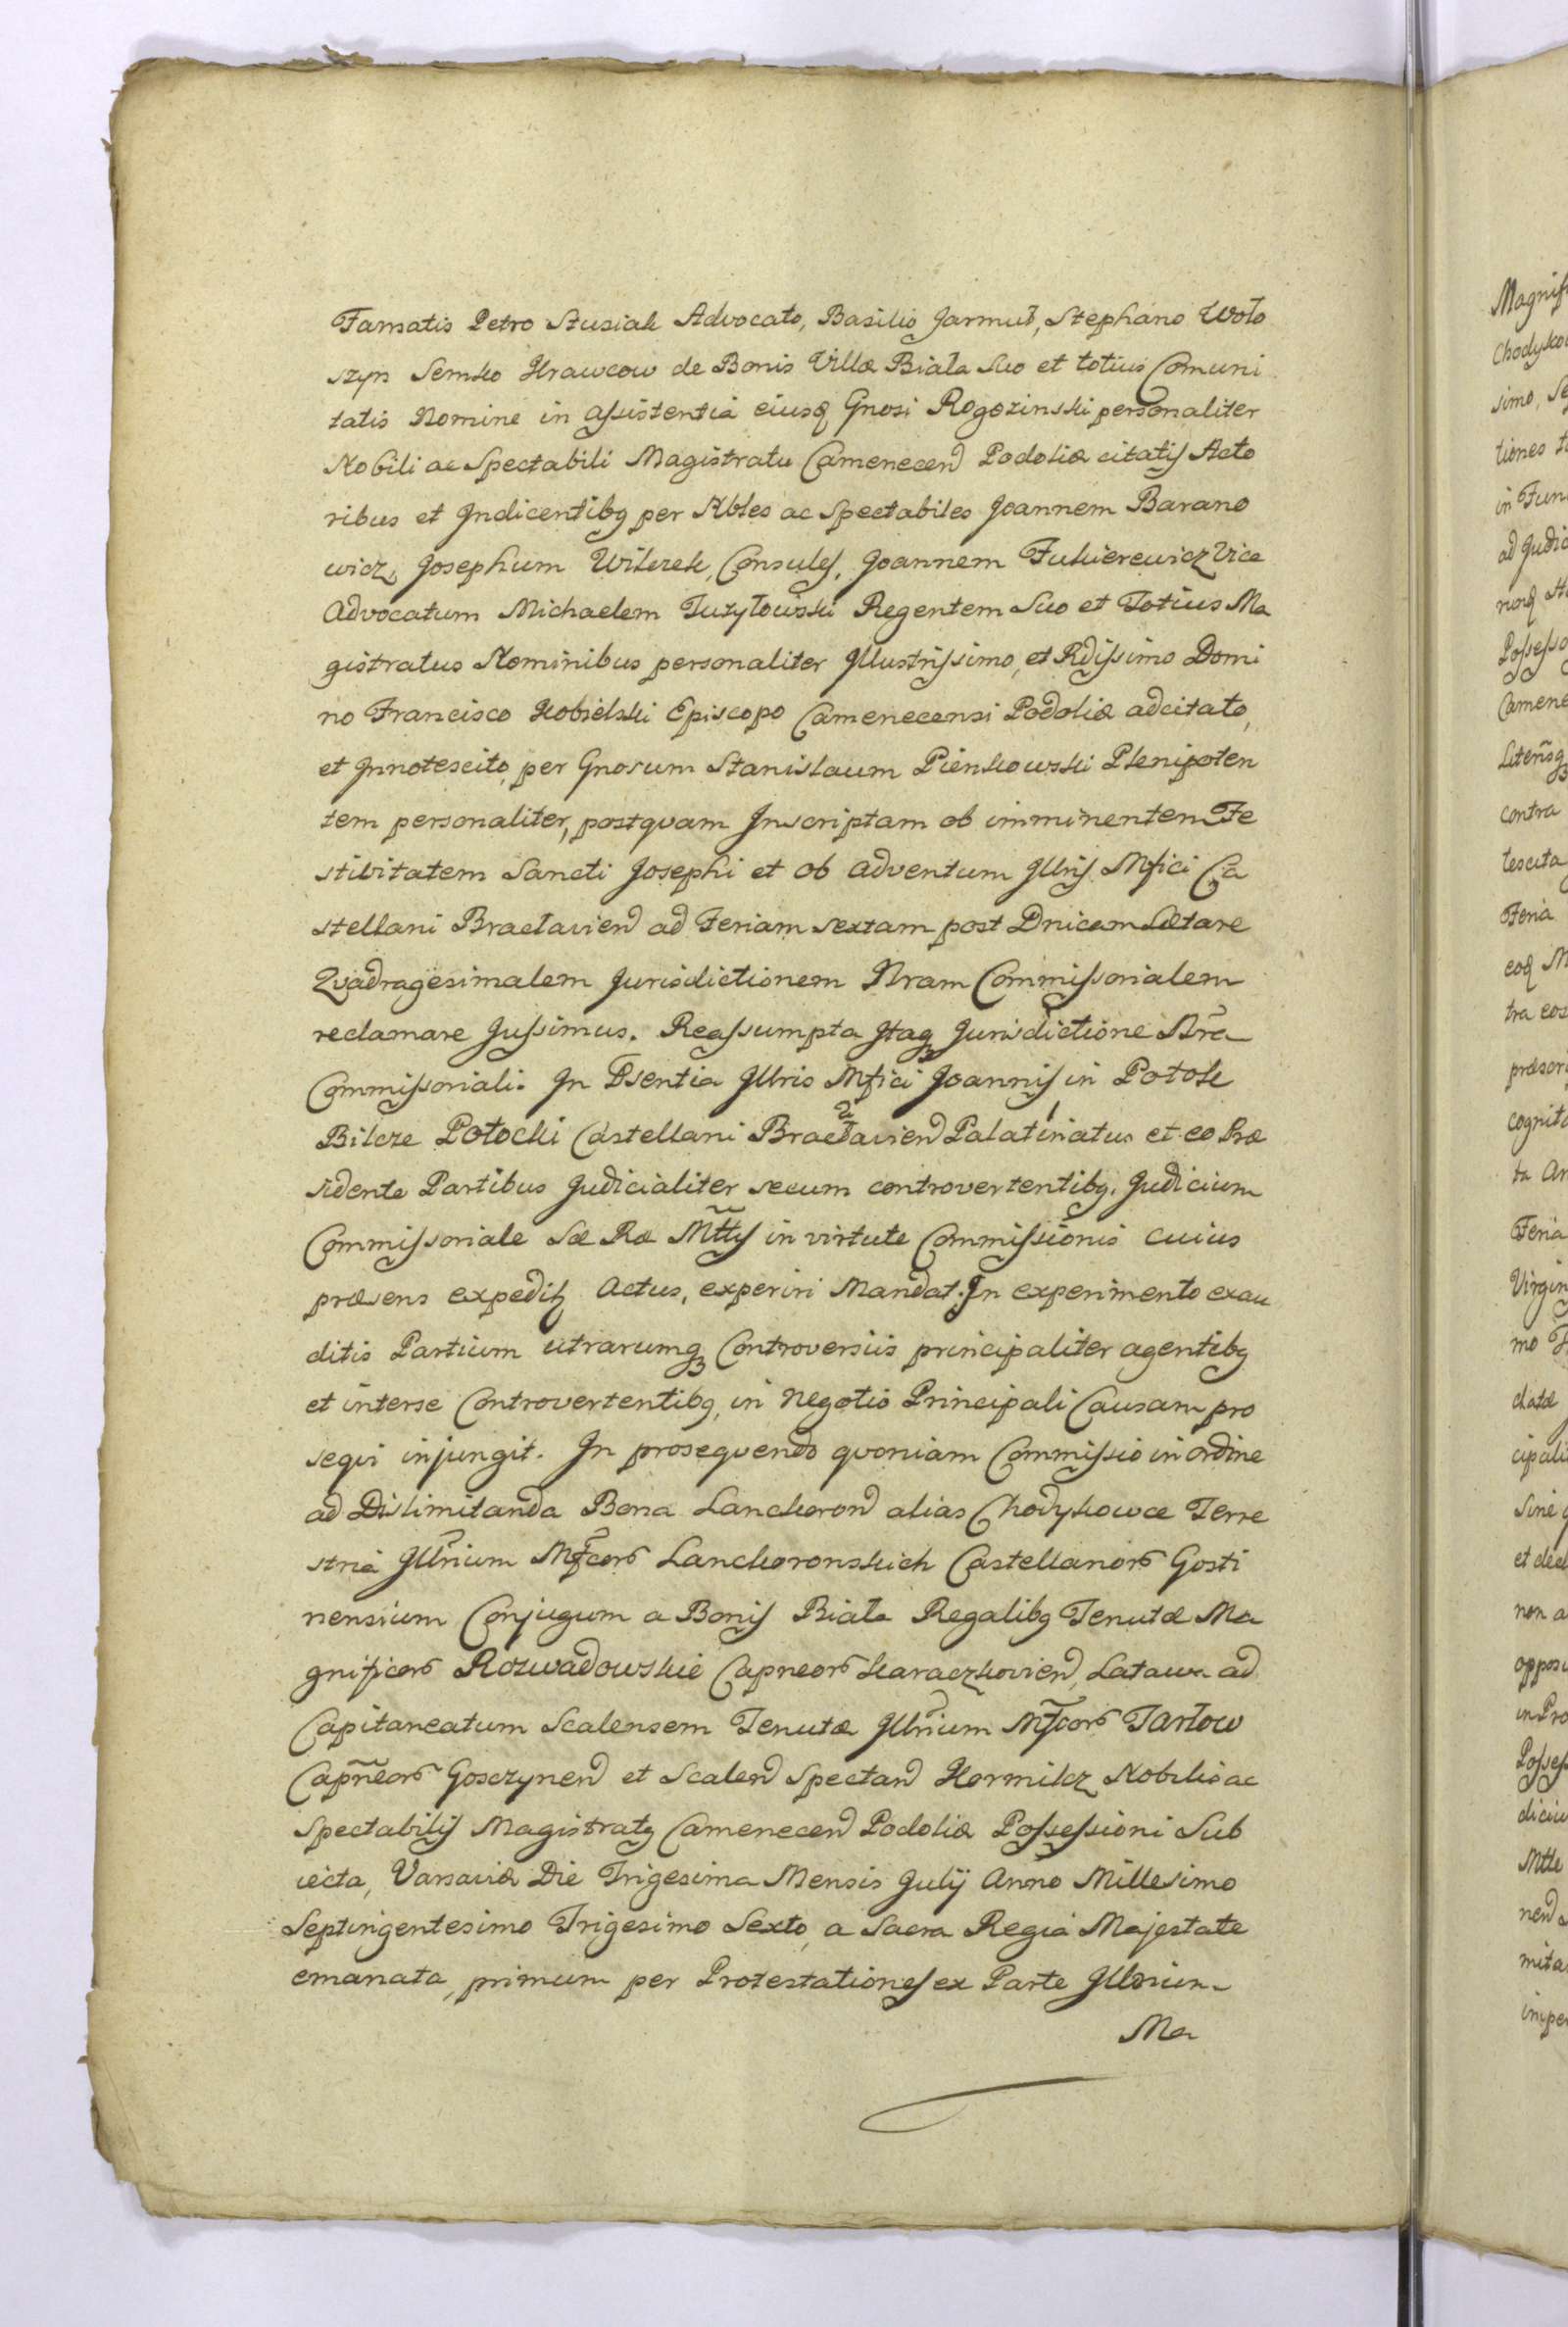 Famatis Petro Stusiak Advocato, Basilio Jarmuł, Stephano Woło
szyn Semko Krawcow de Bonis Villæ Biała Suo et totius Comuni
tatis Nomine in assistentia eiusq Gnosi Rogozinski personaliter
Nobili ac Spectabili Magistratu Camenecen Podoliæ citatis Acto
ribus et Indicentibq per Nbles ac Spectabiles Joannem Barano
wicz, Josephum Wilczek, Consules, Joannem Fukierewicz Vice
Advocatum Michaelem Juzyłowski Regentem Suo et Totius Ma
gistratus Nominibus personaliter Illustrissimo, et Rdissimo Domi
no Francisco Kobielski Episcopo Camenecensi Podoliæ adcitato,
et Innotescito, per Gnosum Stanislaum Pienkowski Plenipoten
tem personaliter, postqvam Inscriptam ob imminentem Fe
stivitatem Sancti Josephi et ob adventum Illris Mfici Ca
stellani Braclavien ad Feriam sextam post Dnicam Lætare
Qvadragesimalem Jurisdictionem Nram Commissorialem
reclamare Jussimus. Reassumpta Itaq Jurisdictione Nra
Commissoriali. In Psentia Illris Mfici Joannis in Potok
Bilcze Potocki Castellani Braclavien Palatinatus et eo Præ
sidente Partibus Judicialiter secum controvertentibq. Judicium
Commissoriale Sæ Ræ Mttis in virtute Commissionis cuius
præsens expeditq Actus, experiri Mandat. In experimento exau
ditis Partium utrarumq Controversiis principaliter agentibq
et interse Controvertentibq, in Negotio Principali Causam pro
seqvi injungit. In proseqvendo qvoniam Commissio in ordine
ad Dislimitanda Bona Lanckoron alias Chodykowce Terre
stria Illrium Mfcor Lanckoronskich Castellanor Gosti
nensium Conjugum a Bonis Biała Regalibq Tenutæ Ma
gnificor Rozwadowskie Capneor Karaczkovien, Latawa ad
Capitaneatum Scalensem Tenutæ Illrium Mfcor Tarłow
Capneor Gosczynen et Scalen Spectan Kormilcz Nobilis ac
Spectabilis Magistratq Camenecen Podoliæ Possessioni Sub
iecta, Varsaviæ Die Trigesima Mensis Julij Anno Millesimo
Septingentesimo Trigesimo Sexto, a Sacra Regia Majestate
emanata, primum per Protestationes ex Parte Illrium
Ma
Magnif
Chodyko
simo, Se
tiones
in Fun
ad Judic
norq
Possesso
Camene
contra
tescita
Feria
eoq M
tra eos
cognit
ta
Feria
Virgin
mo
datæ
cipali
Sine
non a
oppos
in Pro
Posses
diciu
Mtte
nen
mita